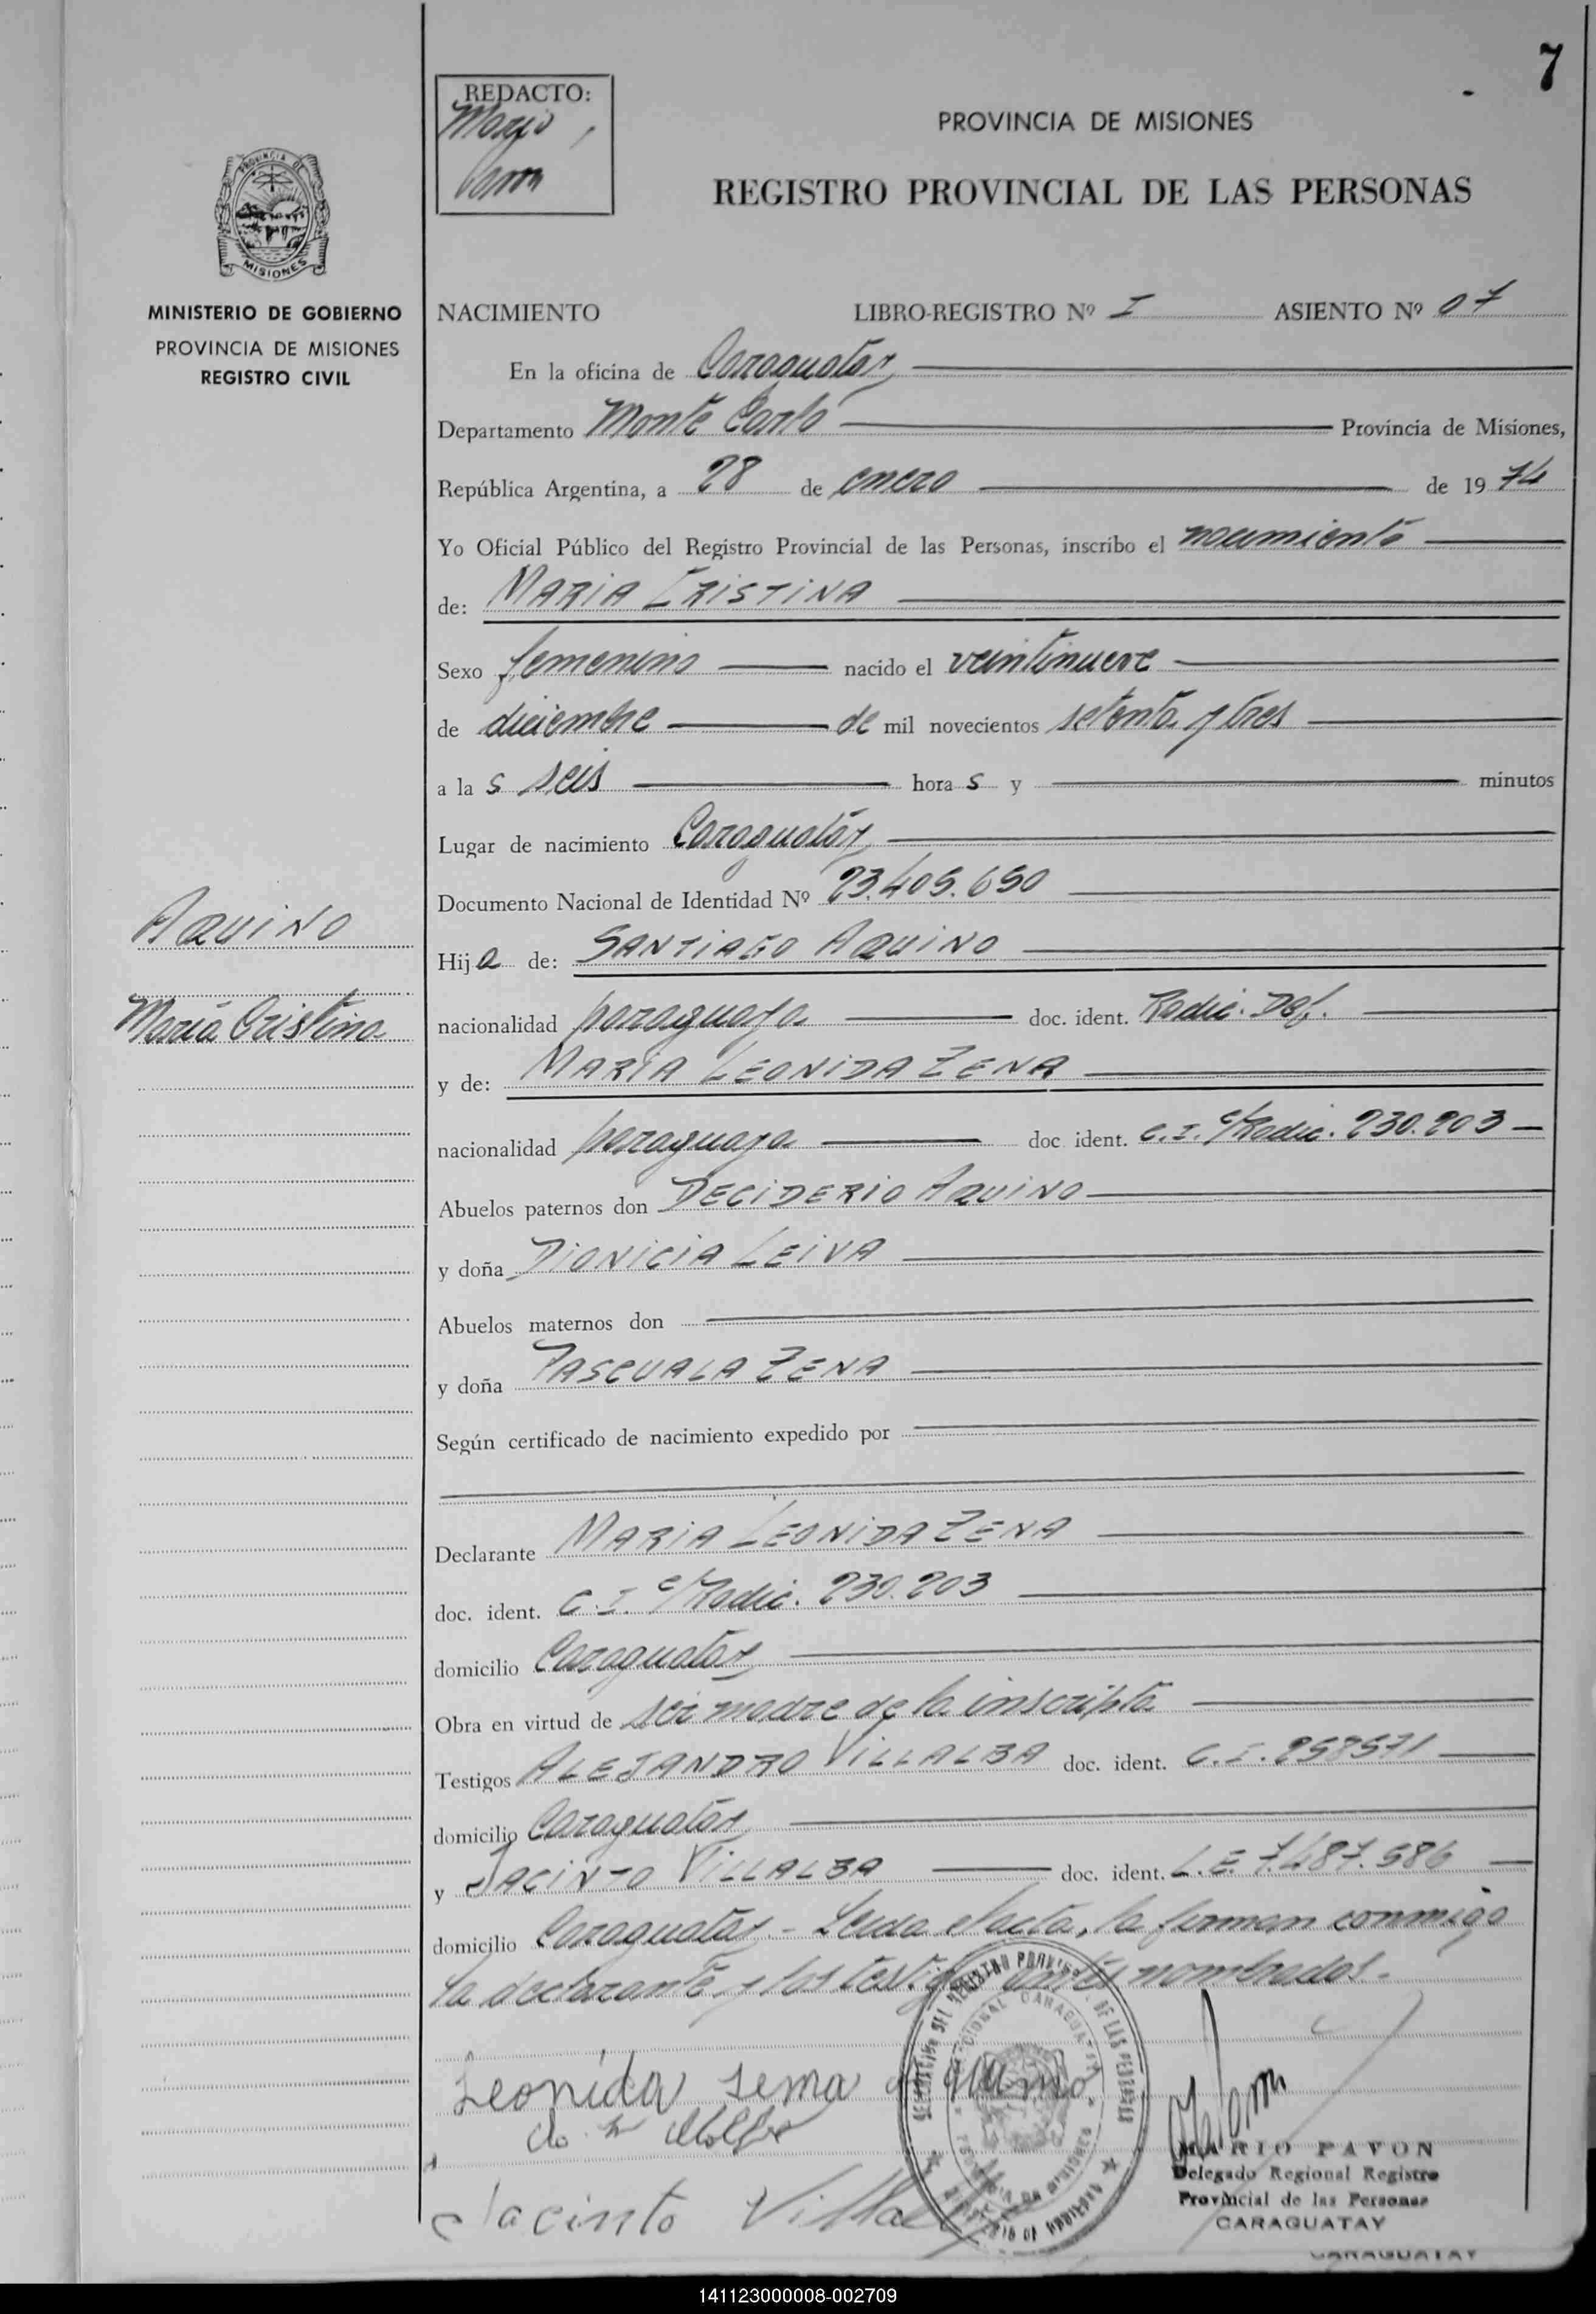 7
REDACTO:
Mario
Pavon
PROVINCIA DE MISIONES
REGISTRO PROVINCIAL DE LAS PERSONAS
PROVINCIA DE
MISIONES
MINISTERIO DE GOBIERNO
PROVINCIA DE MISIONES
REGISTRO CIVIL
NACIMIENTO LIBRO-REGISTRO Nº I ASIENTO Nº 07
En la oficina de Caraguatay
Departamento Monte Carlo Provincia de Misiones,
República Argentina, a 28 de enero de 1974
Yo Oficial Público del Registro Provincial de las Personas, inscribo el nacimiento
de: MARIA CRISTINA
Sexo femenino nacido el veintinueve
de diciembre de mil novecientos setenta y tres
a las seis horas y minutos
Lugar de nacimiento Caraguatay
Documento Nacional de Identidad Nº 23.405.650
Aquino
María Cristina
Hija de: SANTIAGO AQUINO
nacionalidad paraguaya doc. ident. Radic. Def.
y de: MARIA LEONIDA ZENA
nacionalidad paraguaya doc ident. C.I. c/Radic. 230.203
Abuelos paternos don DECIDERIO AQUINO
y doña DIONICIA LEIVA
Abuelos maternos don
y doña PASCUALA ZENA
Según certificado de nacimiento expedido por
Declarante MARIA LEONIDA ZENA
doc. ident. C.I. c/Radic. 230.203
domicilio Caraguatay
Obra en virtud de ser madre de la inscripta
Testigos ALEJANDRO VILLALBA doc. ident. C.I. 258571
domicilio Caraguatay
y JACINTO VILLALBA doc. ident. L.E. 7.487.586
domicilio Caraguatay.- Leida el acta, la firman conmigo
la declarante y los testigos antes nombrados.-
Leonida sema de
Jacinto Villal
MARIO PAVON
Delegado Regional Registro
Provincial de las Personas
CARAGUATAY
CARAGUATAY
141123000008-002709